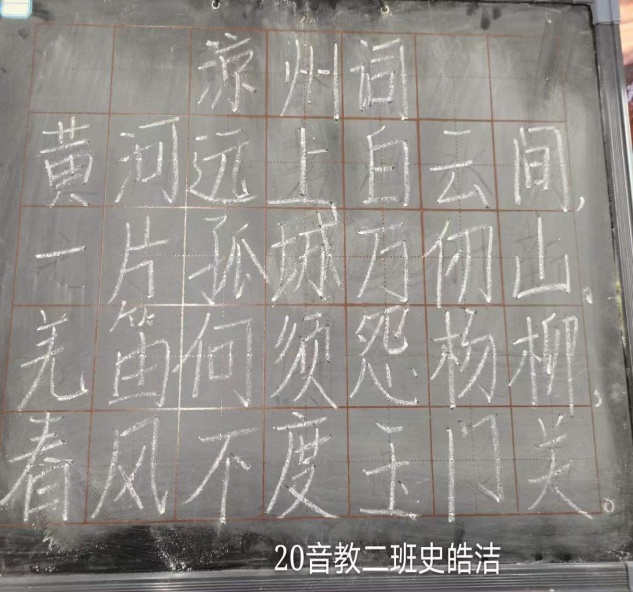 凉州词
黄河远上白云间,
一片孤城万仞山.
羌笛何须怨杨柳,
春风不度玉门关。
20音教二班史皓洁